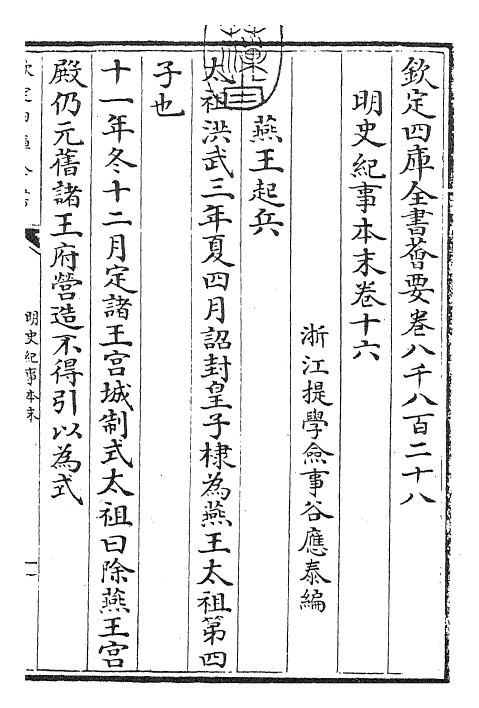 欽定四庫全書薈要卷八千八百二十八
明史紀事本末卷十六
浙江提學僉事谷應泰編
燕王起兵
太祖洪武三年夏四月詔封皇子棣為燕王太祖第四
子也
十一年冬十二月定諸王宮城制式太祖曰除燕王宮
殿仍元舊諸王府營造不得引以為式
明史紀事本末